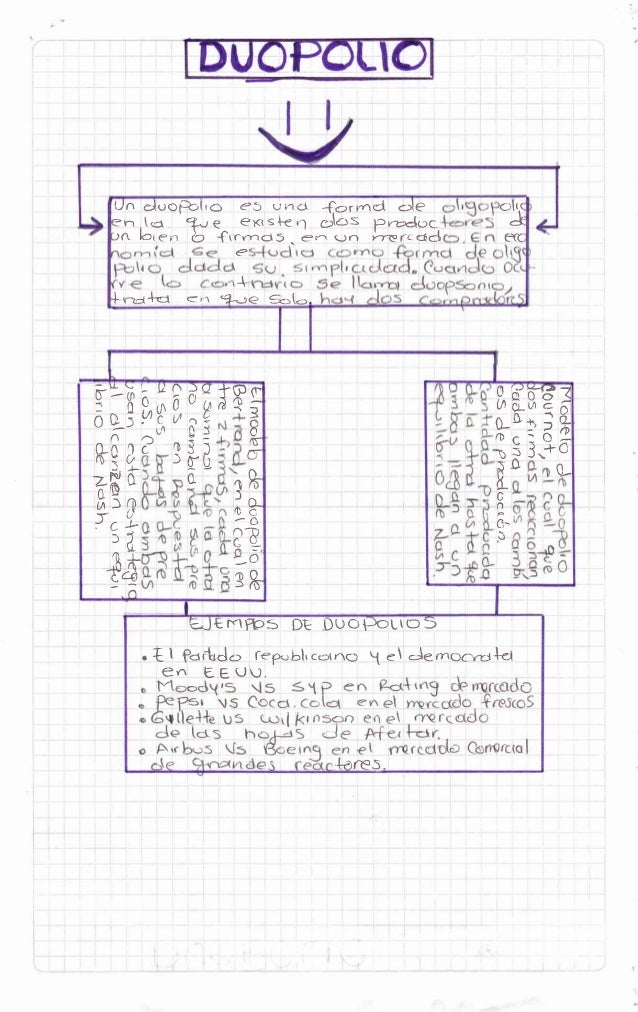 DUOPOLIO
Un duopolio es una forma de oligopolio
en la que existen dos productores de
un bien o firmas, en un mercado. En eco
nomia se estudia como forma de oligo
polio dada su simplicidad. Cuando ocu-
rre lo contrario se llama duopsonio,
trata en que solo hay dos compradores
El modelo de duopolio de
Bertrand, en el cual en
tre 2 firmas, cada una
asumira que la otra
no cambiara sus pre
cios en respuesta
a sus bajas de pre
cios. Cuando ambas
usan esta estrategia
al alcanzan un equi
librio de Nash.
Modelo de duopolio
Cournot, el cual que
dos firmas reaccionan
cada una a los camb,
os de producción.
Cantidad producida
de la otra hasta que
ambas llegan a un
equilibrio de Nash.
EJEMPOS DE DUOPOLIOS
• El Partido republicano y el democrata
en EEUU.
• Moody's VS SyP en Rating de mercado
• Pepsi VS Coca.cola en el mercado frescos
• Gillette VS wilkinson en el mercado
de las hojas de Afeitar.
• Airbus Vs Boeing en el mercado Comercial
de grandes reactores.